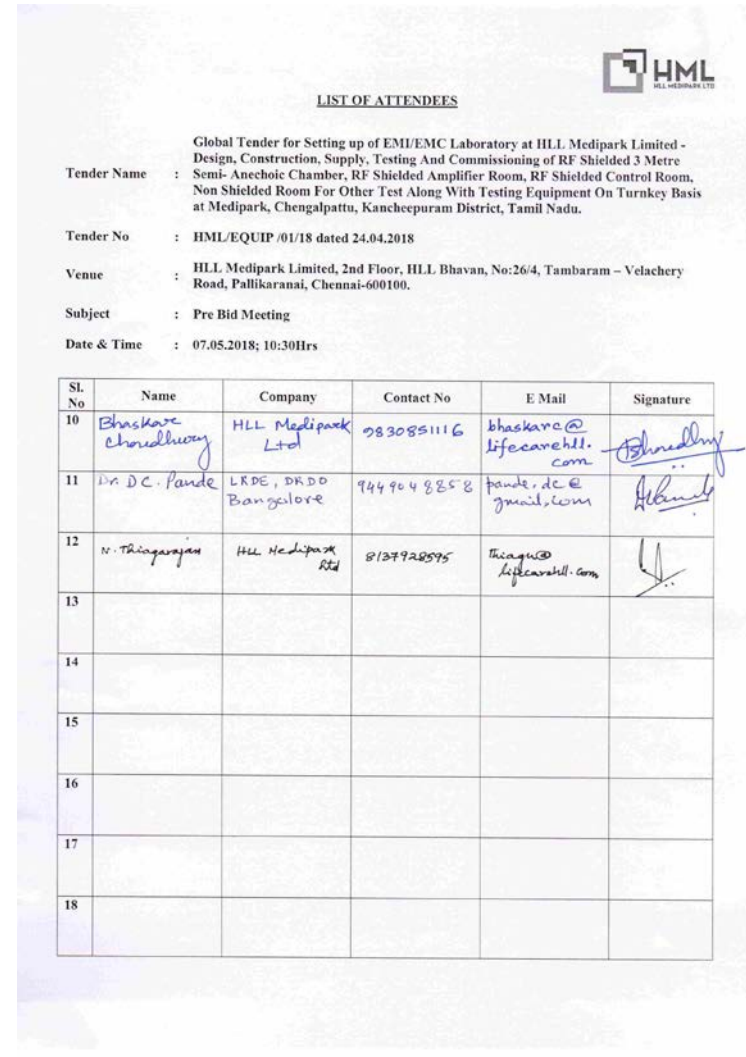 HML
HLL MEDIPARK LTD
LIST OF ATTENDEES
Global Tender for Setting up of EMI/EMC Laboratory at HLL Medipark Limited -
Design, Construction, Supply, Testing And Commissioning of RF Shielded 3 Metre
Tender Name : Semi- Anechoic Chamber, RF Shielded Amplifier Room, RF Shielded Control Room,
Non Shielded Room For Other Test Along With Testing Equipment On Turnkey Basis
at Medipark, Chengalpattu, Kancheepuram District, Tamil Nadu.
Tender No : HML/EQUIP /01/18 dated 24.04.2018
Venue : HLL Medipark Limited, 2nd Floor, HLL Bhavan, No:26/4, Tambaram – Velachery
Road, Pallikaranai, Chennai-600100.
Subject : Pre Bid Meeting
Date & Time : 07.05.2018; 10:30Hrs
Sl. No Name Company Contact No E Mail Signature
10 Bhaskare HLL Medipark 9830851116 bhaskarc@
Choudhury Ltd lifecarehll.
com
11 Dr. D C. Pande LRDE, DRDO 9449048858 pande.dc@
Bangalore gmail.com
12 N. Thiagarajan HLL Medipark 8137928595 thiagu@
Ltd lifecarehll.com
13
14
15
16
17
18